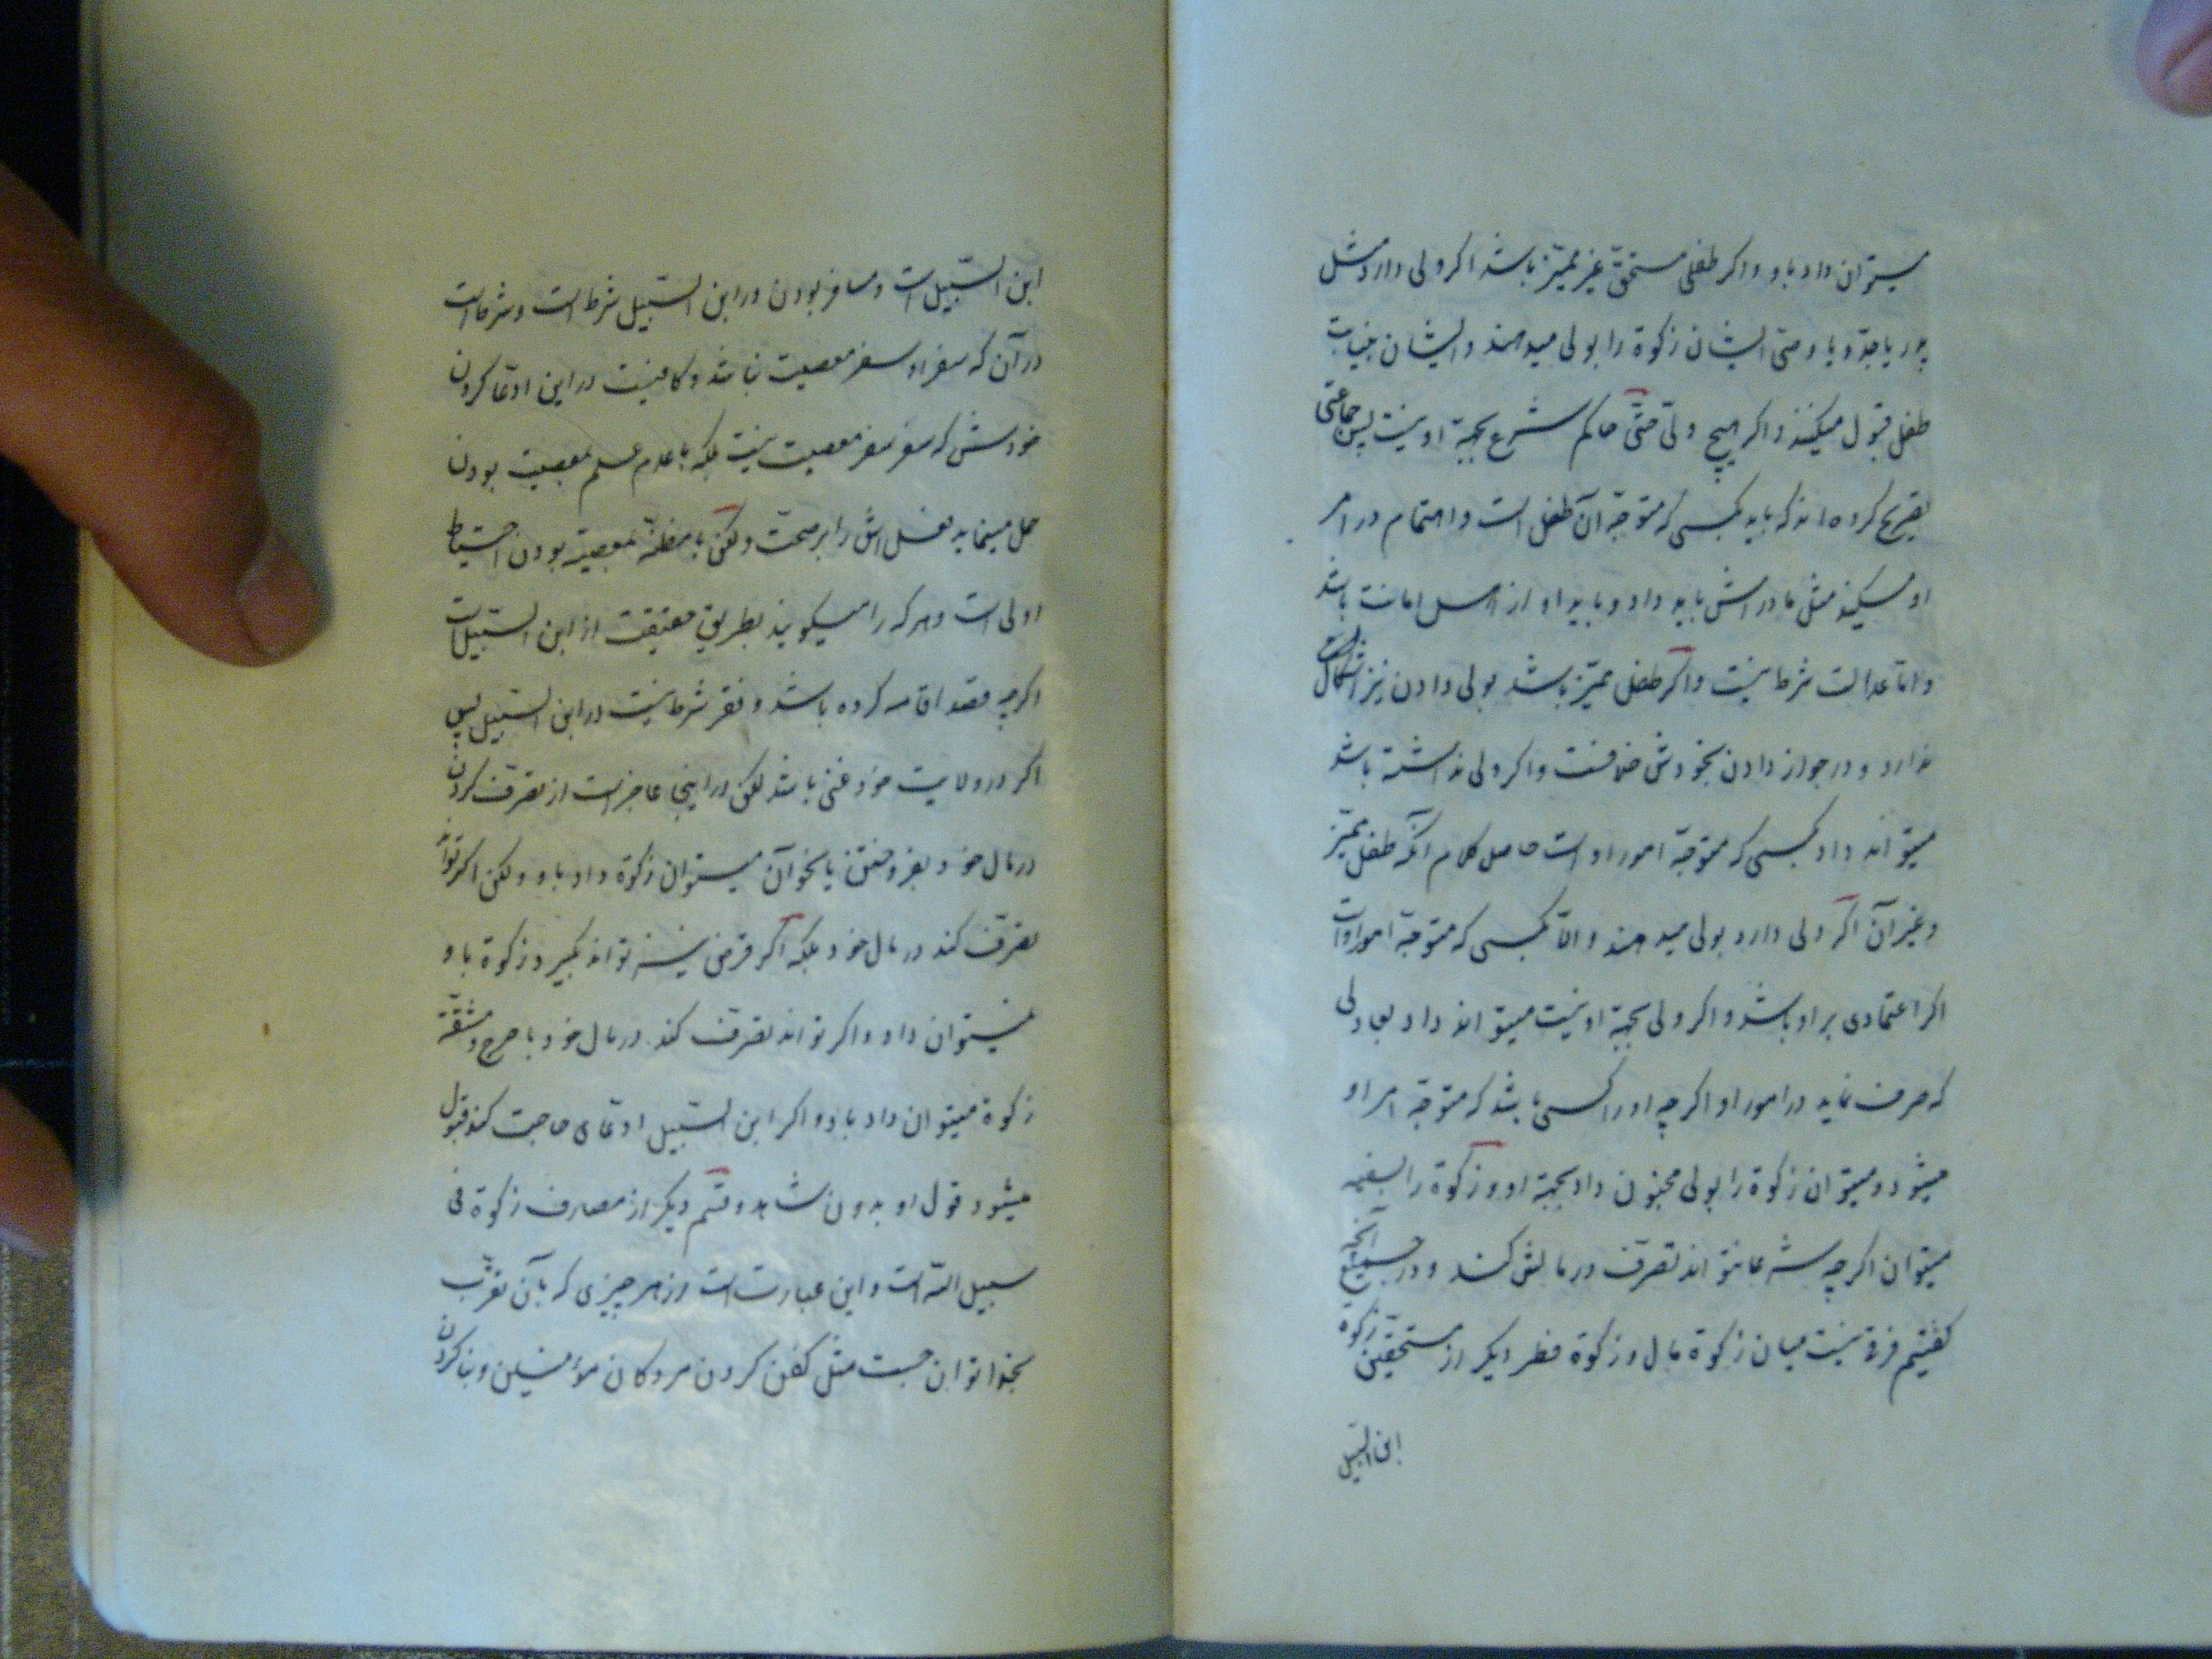 میتوان داد باو و اگر طفل مستحق غیر ممیّز باشد اگر ولی دارد مثل
پدر یا جدّ و یا وصی ایشان زکوة را بولی میدهند و ایشان بنیابت
طفل قبول میکنند و اگر هیچ ولیّ حتّی حاکم شرع بجهة او نیست پس جماعتی
تصریح کرده اند که باید بکسی که متوجّه آن طفل است و اهتمام در امر
او میکند مثل مادرش باید داد و باید او از اهل امانت باشد
و امّا عدالت شرط نیست و اگر طفل ممیّز باشد بولی دادن نیز اشکال
ندارد و در جواز دادن بخودش خلافست و اگر ولی نداشته باشد
میتواند داد بکسی که متوجّه امور او است حاصل کلام آنکه طفل ممیّز
و غیر آن اگر ولی دارد بولی میدهند و امّا بکسی که متوجّه امور اوست
اگر اعتمادی بر او باشد و اگر ولی بجهة او نیست میتواند داد بعادلی
که صرف نماید در امور او اگر چه او را کسی باشد که متوجّه امر او
میشود و میتوان زکوة را بولی مجنون داد بجهة او و زکوة را بسفیه
میتوان اگر چه شرعا نتواند تصرّف در مالش کند و در جمیع آنچه
گفتیم فرق نیست میان زکوة مال و زکوة فطر دیگر از مستحقین زکوة
ابن السّبیل
ابن السّبیل است و مسافر بودن در ابن السّبیل شرط است و شرط است
در آن که سفر او سفر معصیت نباشد و کافیست در این ادّعا کردن
خودش که سفر سفر معصیت نیست بلکه با عدم علم بمعصیت بودن
حمل مینماید فعل اش را بر صحّت ولکن با مظنّه بمعصیة بودن احتیاط
اولی است و هر که را میگویند بطریق حقیقت از ابن السّبیل است
اگرچه قصد اقامه کرده باشد و فقر شرط نیست در ابن السّبیل پس
اگر در ولایت خود غنی باشد لکن در اینجا عاجز است از تصرّف کردن
در مال خود بفروختن یا بنحو آن میتوان زکوة داد باو و لکن اگر تواند
تصرّف کند در مال خود بلکه اگر قرض نیز تواند بگیرد زکوة باو
نمیتوان داد و اگر تواند تصرّف کند در مال خود با حرج و مشقّة
زکوة میتوان داد باو و اگر ابن السّبیل ادّعای حاجت کند قبول
میشود قول او بدون شاهد و قسم دیگر از مصارف زکوة فی
سبیل اللّه است و این عبارت است از هر چیزی که بآن تقرّب
بخدا توان جست مثل کفن کردن مردگان مؤمنین و بنا کردن